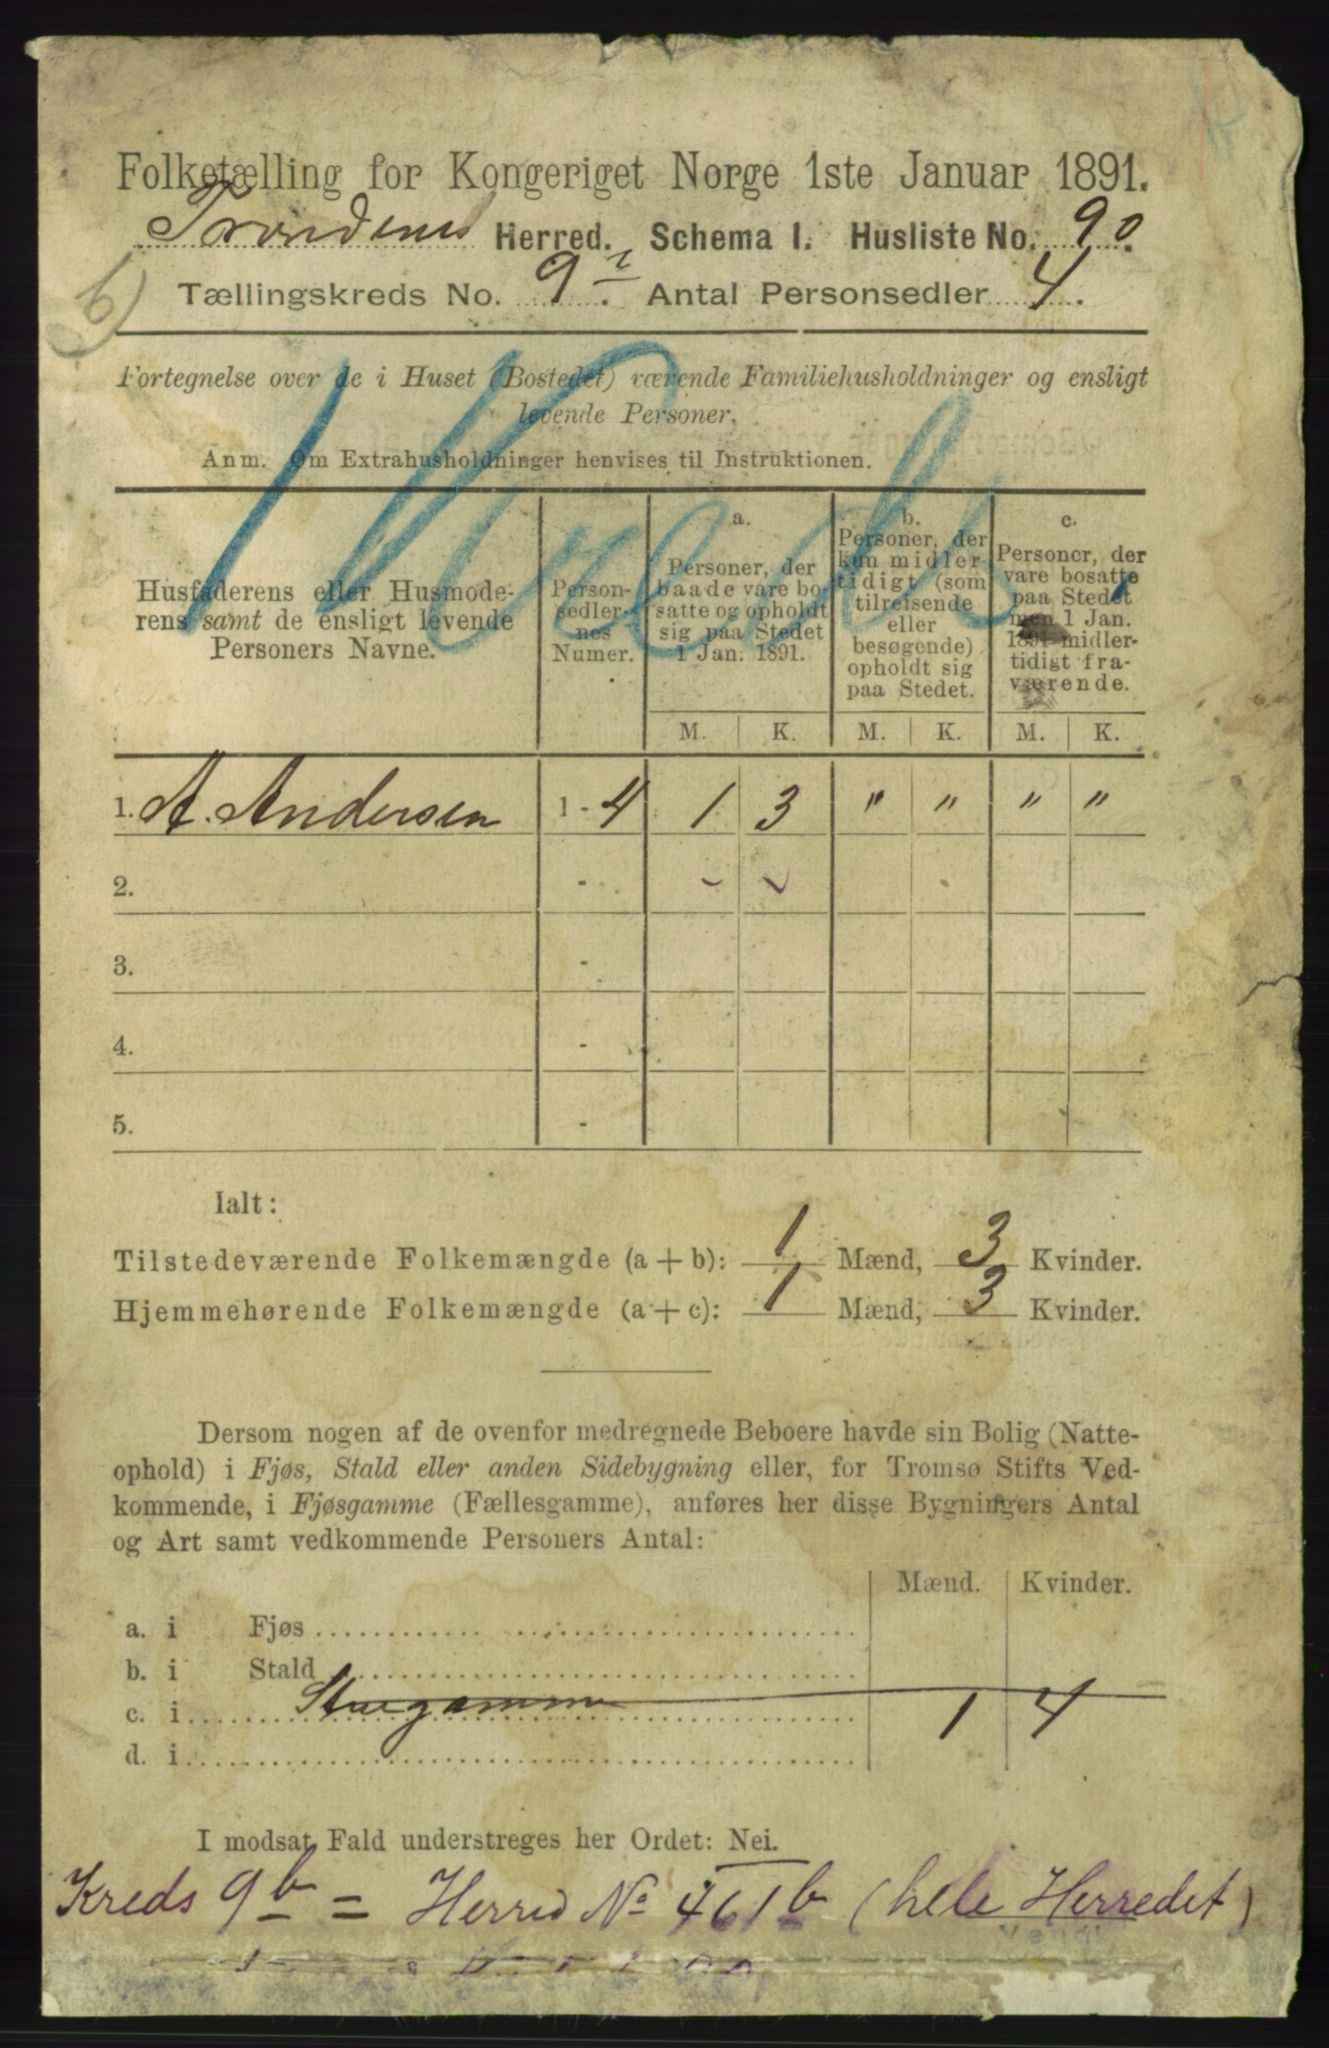 Folketælling for Kongeriget Norge 1ste Januar 1891.
Trondenes Herred. Schema I. Husliste No. 90.
b)
Tællingskreds No. 9. Antal Personsedler 4.
Fortegnelse over de i Huset (Bostedet) værende Familiehusholdninger og ensligt
levende Personer.
Anm. Om Extrahusholdninger henvises til Instruktionen.
Husfaderens eller Husmode-
rens samt de ensligt levende
Personers Navne.
Person-
sedler-
nes
Numer.
a.
Personer, der
baade vare bo-
satte og opholdt
sig paa Stedet
1 Jan. 1891.
b.
Personer, der
kun midler-
tidigt (som
tilreisende
eller
besøgende)
opholdt sig
paa Stedet.
c.
Personer, der
vare bosatte
paa Stedet
men 1 Jan.
1891 midler-
tidigt fra-
værende.
M. K. M. K. M. K.
1. A. Andersen 1 - 4 1 3 " " " "
2. -
3. -
4. -
5. -
Ialt:
Tilstedeværende Folkemængde (a + b): 1 Mænd, 3 Kvinder.
Hjemmehørende Folkemængde (a + c): 1 Mænd, 3 Kvinder.
Dersom nogen af de ovenfor medregnede Beboere havde sin Bolig (Natte-
ophold) i Fjøs, Stald eller anden Sidebygning eller, for Tromsø Stifts Ved-
kommende, i Fjøsgamme (Fællesgamme), anføres her disse Bygningers Antal
og Art samt vedkommende Personers Antal:
Mænd. Kvinder.
a. i Fjøs
b. i Stald
c. i Stuegamme 1 4
d. i
I modsat Fald understreges her Ordet: Nei.
Kreds 9b = Herred No 461b (hele Herredet)